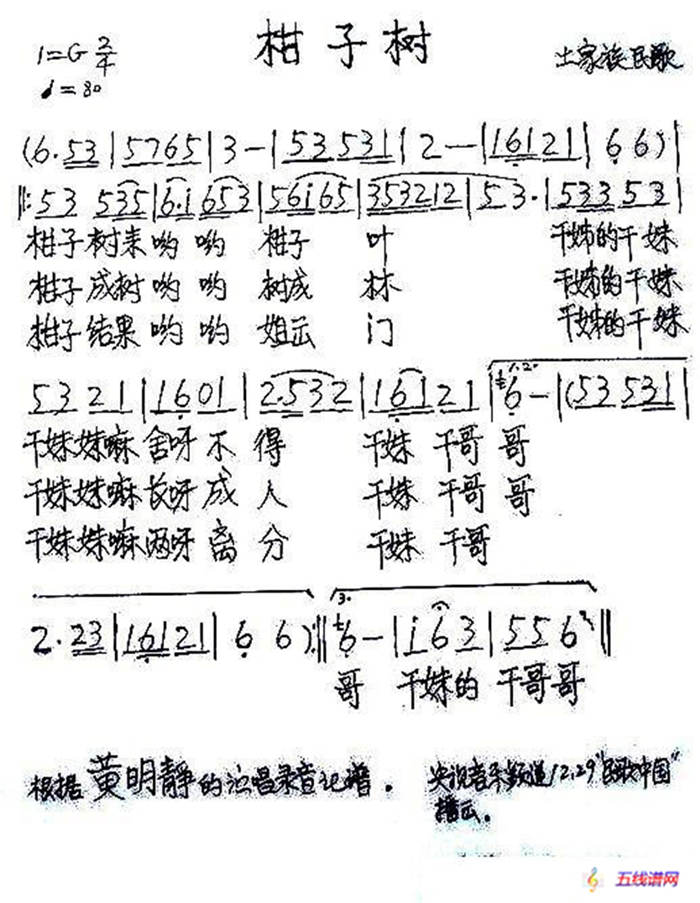 柑子树
1=G 2/4
♩=80
土家族民歌
(6·53|5765|3-|53531|2-|16121|66)|
‖:53 535|6·i653|56i65|353212|53·|53353|
柑子树来哟哟 柑子 叶 干妹的干妹
柑子成树哟哟 树成 林 干妹的干妹
柑子结果哟哟 姐出 门 干妹的干妹
5321|1601|2·532|16121|6-|(53531|
1.2.
干妹妹嘛舍呀不得 干妹 干哥哥
干妹妹嘛长呀成人 干妹 干哥哥
干妹妹嘛两呀离分 干妹 干哥
2·23|16121|66):‖6-|i63|556‖
3.
哥 干妹的 干哥哥
根据黄明静的演唱录音记谱。
央视音乐频道12.29"民歌中国"
播出。
五线谱网